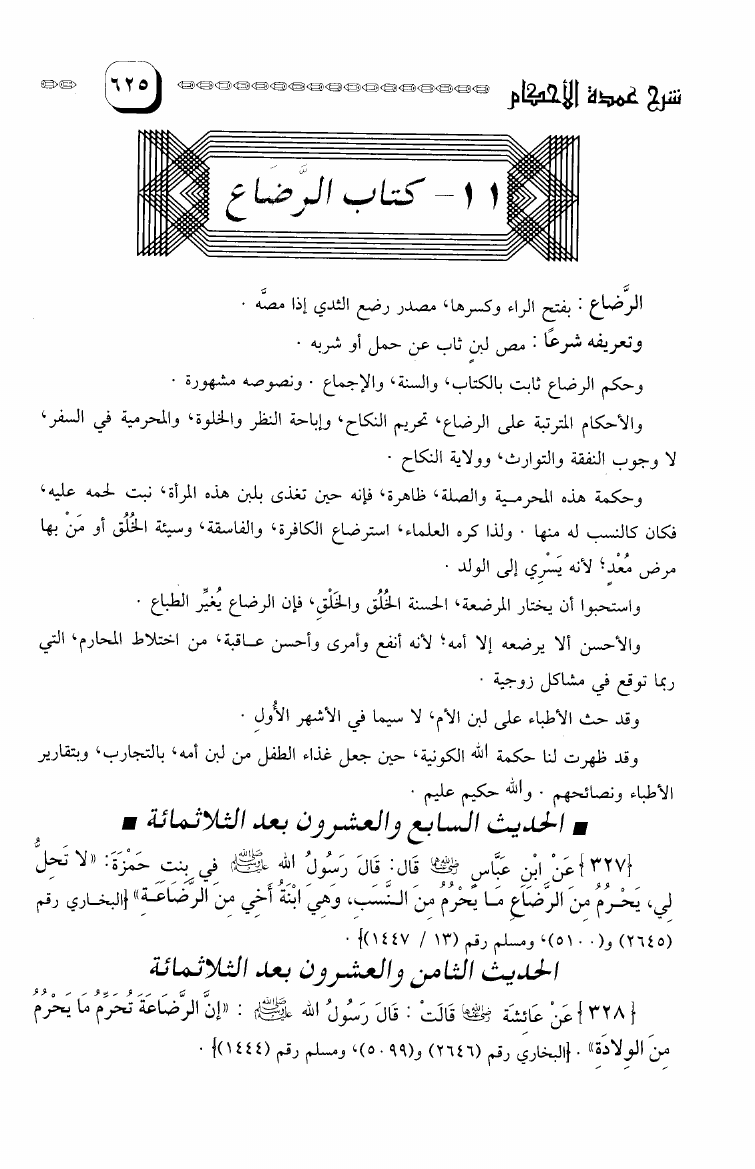 شرح عمدة الأحكام
٦٢٥
١١ - كتاب الرَّضَاع
الرَّضاع : بفتح الراء وكسرها، مصدر رضع الثدي إذا مصَّه .
وتعريفه شرعًا : مص لبنٍ ثاب عن حمل أو شربه .
وحكم الرضاع ثابت بالكتاب، والسنة، والإجماع . ونصوصه مشهورة .
والأحكام المترتبة على الرضاع، تحريم النكاح، وإباحة النظر والخلوة، والمحرمية في السفر،
لا وجوب النفقة والتوارث، وولاية النكاح .
وحكمة هذه المحرمية والصلة، ظاهرة، فإنه حين تغذى بلبن هذه المرأة، نبت لحمه عليه،
فكان كالنسب له منها . ولذا كره العلماء، استرضاع الكافرة، والفاسقة، وسيئة الخُلُق أو مَنْ بها
مرض مُعْدٍ؛ لأنه يَسْرِي إلى الولد .
واستحبوا أن يختار المرضعة، الحسنة الخُلُق والخَلْقِ، فإن الرضاع يُغيِّر الطباع .
والأحسن ألا يرضعه إلا أمه؛ لأنه أنفع وأمرى وأحسن عاقبة، من اختلاط المحارم، التي
ربما توقع في مشاكل زوجية .
وقد حث الأطباء على لبن الأم، لا سيما في الأشهر الأُولِ .
وقد ظهرت لنا حكمة الله الكونية، حين جعل غذاء الطفل من لبن أمه، بالتجارب، وبتقارير
الأطباء ونصائحهم . والله حكيم عليم .
■ الحديث السابع والعشرون بعد الثلاثمائة ■
{٣٢٧} عَنْ ابْنِ عَبَّاسٍ رضي الله عنهما قَال: قَالَ رَسُولُ الله ﷺ فِي بِنتِ حَمْزَةَ: «لا تَحِلُّ
لِي، يَحْرُمُ مِنَ الرَّضَاعِ مَا يَحْرُمُ مِنَ النَّسَبِ، وَهِيَ ابْنَةُ أَخِي مِنَ الرَّضَاعَةِ» {البخاري رقم
(٢٦٤٥) و(٥١٠٠)، ومسلم رقم (١٣ / ١٤٤٧)} .
الحديث الثامن والعشرون بعد الثلاثمائة
{٣٢٨} عَنْ عَائِشَة رضي الله عنها قَالَتْ : قَالَ رَسُولُ الله ﷺ : «إِنَّ الرَّضَاعَةَ تُحَرِّمُ مَا يَحْرُمُ
مِنَ الوِلادَةِ» . {البخاري رقم (٢٦٤٦) و(٥٠٩٩)، ومسلم رقم (١٤٤٤)} .